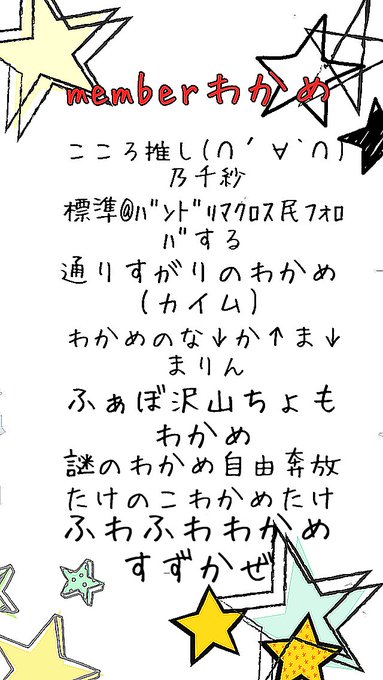 memberわかめ
こころ推し(∩´∀`∩)
乃千紗
標準@ﾊﾞﾝﾄﾞﾘﾏｸﾛｽ民ﾌｫﾛ
ﾊﾞする
通りすがりのわかめ
(カイム)
わかめのな↓か↑ま↓
まりん
ふぁぼ沢山ちょも
わかめ
謎のわかめ自由奔放
たけのこわかめたけ
ふわふわわかめ
すずかぜ